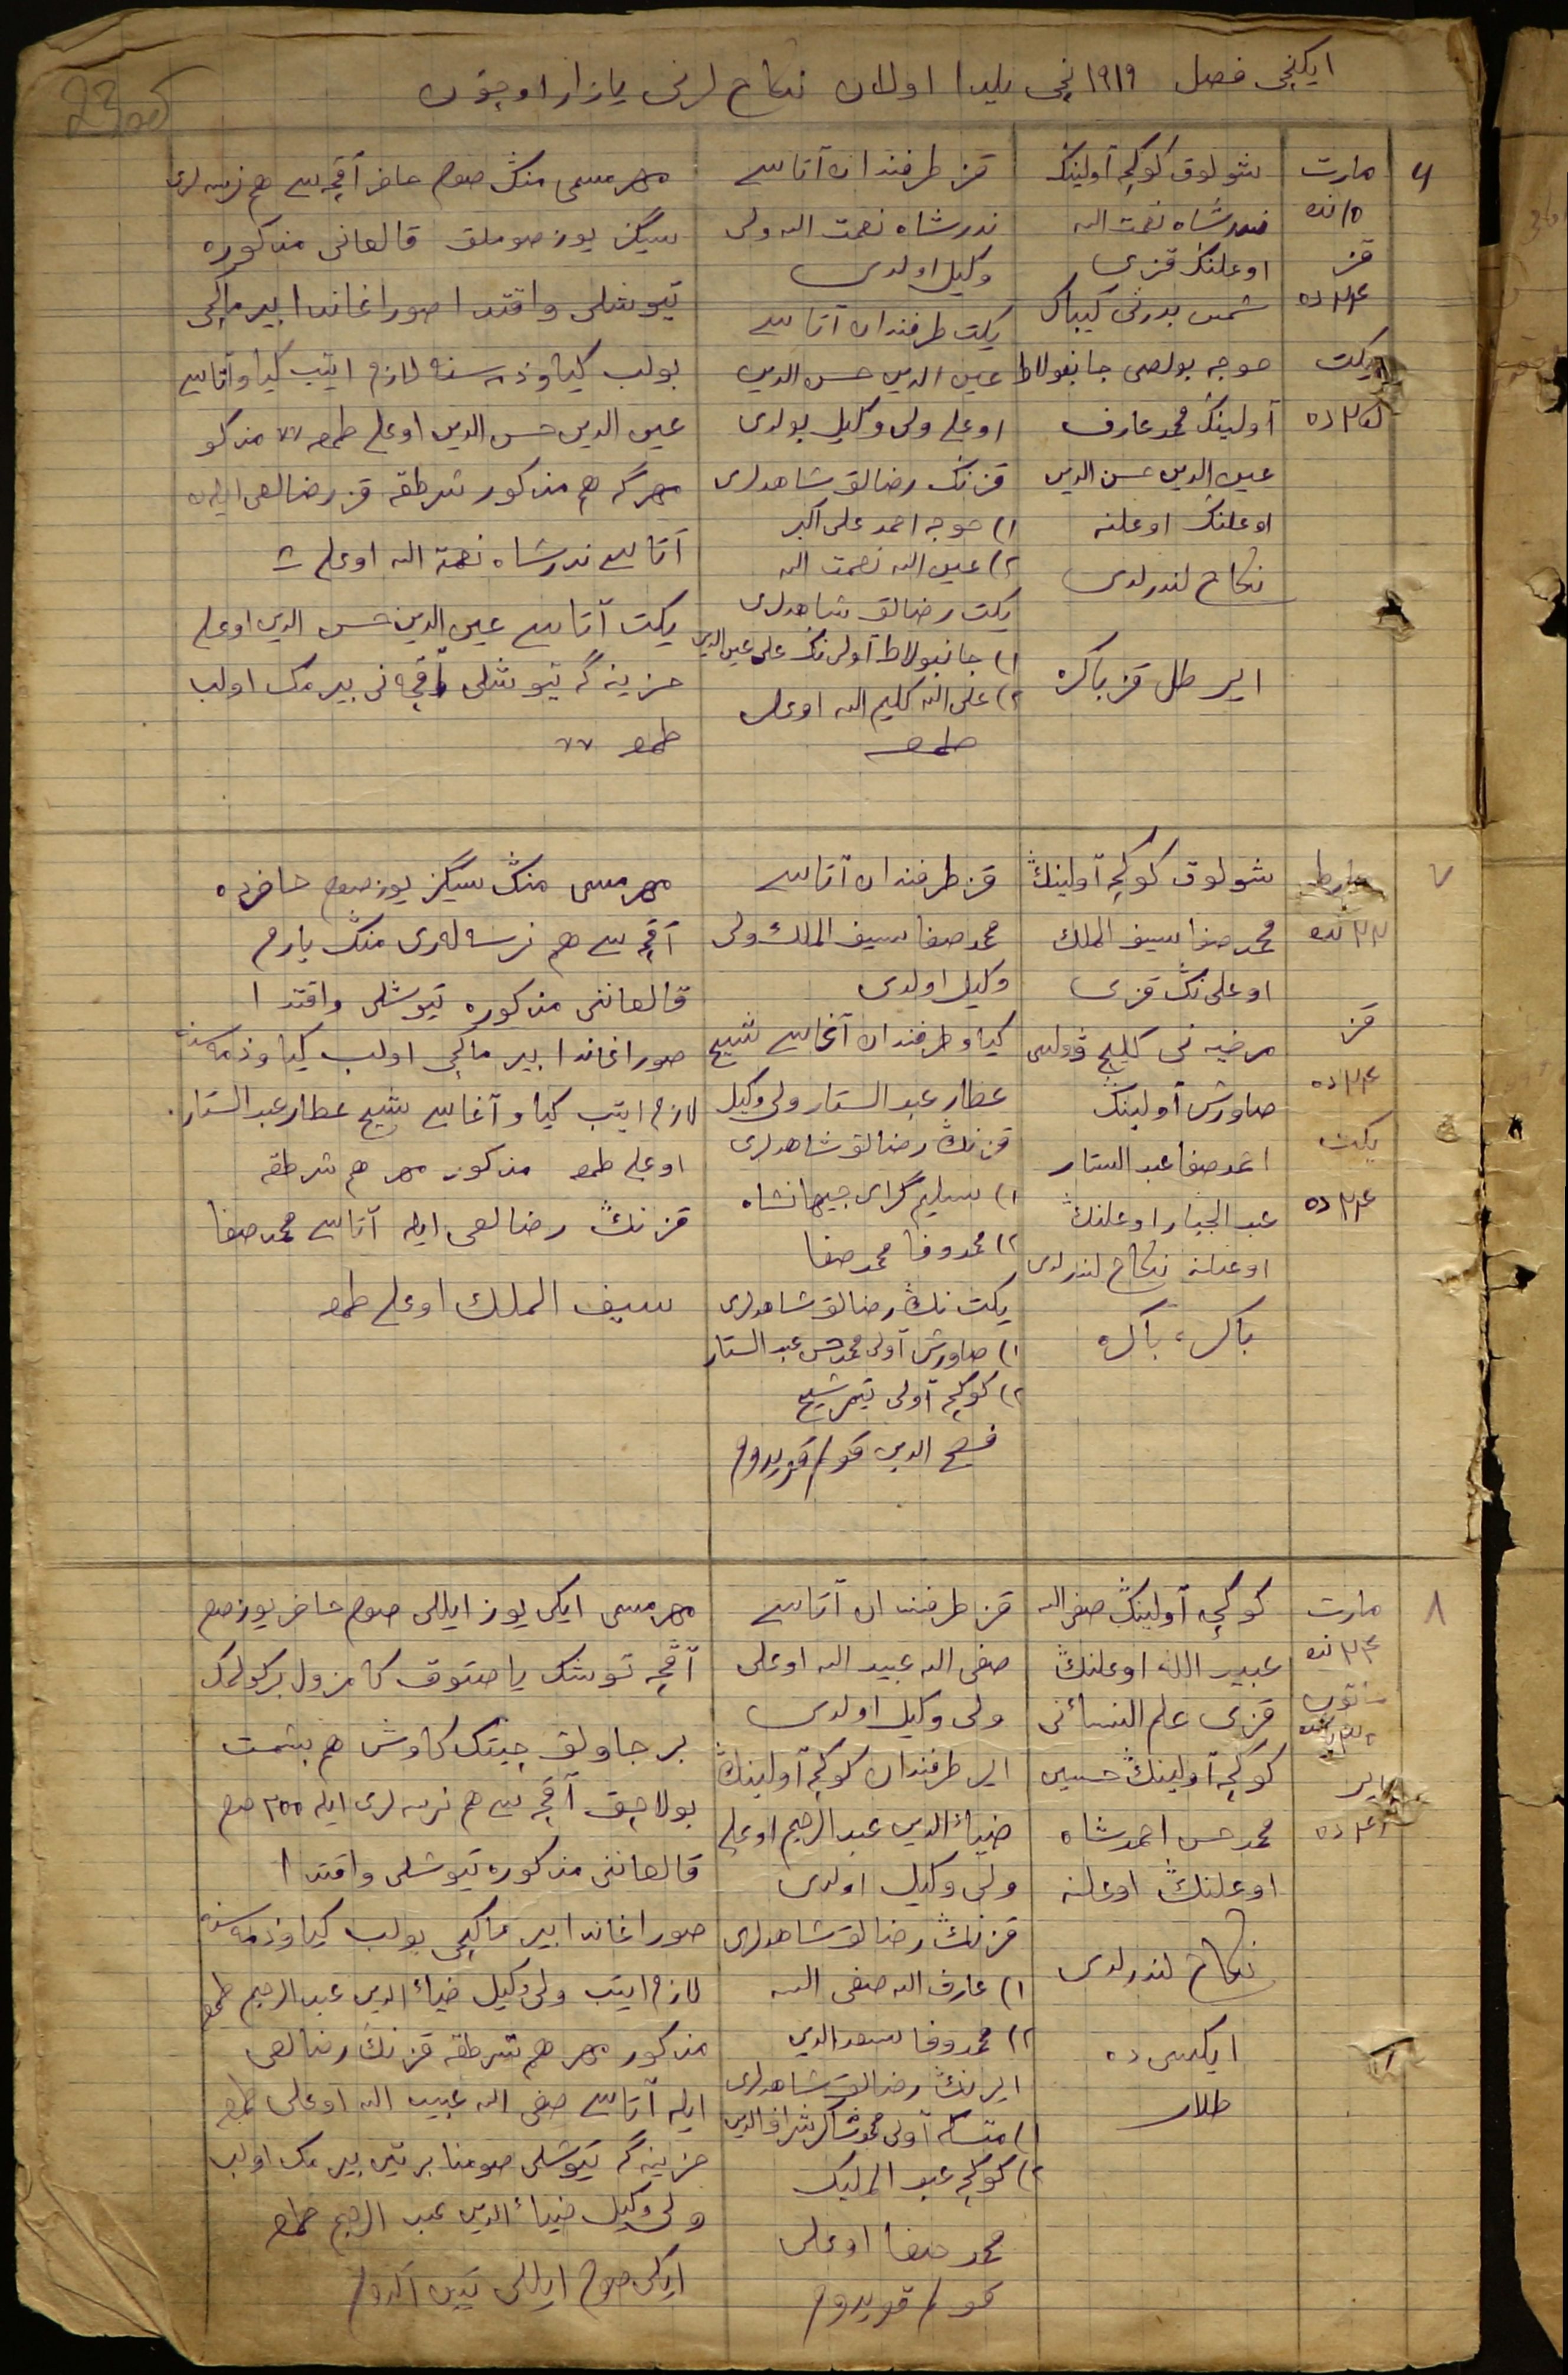 ایکنجی فصل ۱۹۱۹ نچی یلدا اولان نکاح لرنی یازار اوچون
۶
مارت
۱۵ نده
قز
۲۳ ده
یکت
ده
شولوق کوکچه آولینڭ
ندرشاه نعمت الله
اوغلنڭ قزی
شمس بدرنی کیباک
خوجه بولصی جانبولاط
آولینڭ محمد عارف
عین الدین حسن الدین
اوغلنڭ اوغلنه
نکاح لندرلدی
ایر طل قز باکره
قز طرفندان آتاسی
ندرشاه نعمت الله ولی
وکیل اولدی
یکت طرفندان آتاسی
عین الدین حسن الدین
اوغلی ولی وکیل بولدی
قزنڭ رضالق شاهدلری
۱) خوجه احمد علی اکبر
۲) عین الله نعمت الله
یکت رضالق شاهدلری
۱) جانبولاط آولی نڭ علی عین الدین
۲) علی الله کلیم الله اوغلی
طمغه
مهر مسمی منڭ صوم حاضر آقچه سی هم نرسه لری
سیگز یوز صوملق قالغانی مذکوره
تیوشلی واقتدا صوراغاندا بیرماکچی
بولب کیاو ذمه سنه لازم ایتب کیاو آتاسی
عین الدین حسن الدین اوغلی طمغه ۷۷ مذکور
مهرگه هم مذکور شرطقه قز رضالغی ایله
آتاسی ندرشاه نعمة الله اوغلی
یکت آتاسی عین الدین حسن الدین اوغلی
خزینه گه تیوشلی آقچه نی بیرمک اولب
طمغه ۷۷
۷
مارط
۲۲ نده
قز
۲۳ ده
یکت
۲۳ ده
شولوق کوکچه آولینڭ
محمد صفا سیف الملك
اوغلی نڭ قزی
مرضیه نی کلیچ وولسی
صاورش آولینڭ
احمد صفا عبد الستار
عبد الجبار اوغلنڭ
اوغلنه نکاح لندرلدی
باکر، باکره
قز طرفندان آتاسی
محمد صفا سیف الملك ولی
وکیل اولدی
کیاو طرفندان آغاسی شیخ
عطار عبد الستار ولی وکیل
قزنڭ رضالق شاهدلری
۱) سلیم گرای جیهانشاه
۲) محمد وفا محمد صفا
یکت نڭ رضالق شاهدلری
۱) صاورش آولی محمد حسن عبد الستار
۲) کوکچه آولی تیمر شیخ
فصیح الدین قول قویدوم
مهر مسمی منڭ سیگز یوز صوم حاضرده
آقچه سی هم نرسه لری منڭ یارم
قالغاننی مذکوره تیوشلی واقتدا
صوراغاندا بیرماکچی اولب کیاو ذمه سنه
لازم ایتب کیاو آغاسی شیخ عطار عبد الستار
اوغلی طمغه مذکور مهر هم شرطقه
قزنڭ رضالغی ایله آتاسی محمد صفا
سیف الملك اوغلی طمغه
۸
مارت
۲۳ نده
خاتون
ایر
ده
کوکچه آولینڭ صفی الله
عبید الله اوغلنڭ
قزی علم النسائنی
کوکچه آولینڭ حسین
محمد حسن احمدشاه
اوغلنڭ اوغلنه
نکاح لندرلدی
ایکسی ده
طلاق
قز طرفندان آتاسی
صفی الله عبید الله اوغلی
ولی وکیل اولدی
ایر طرفندان کوکچه آولینڭ
ضیاء الدین عبد الرحیم اوغلی
ولی وکیل اولدی
قزنڭ رضالق شاهدلری
۱) عارف الله صفی الله
۲) محمد وفا سعد الدین
ایرنڭ رضالق شاهدلری
۱) آولی محمد شاکر شراف الدین
۲) کوکچه عبد الملیک
محمد صفا اوغلی
قول قویدوم
مهر مسمی ایکی یوز ایللی صوم حاضر یوز صوم
آقچه توشک یاصتوق کامزول بر کولمک
بر جاولق چیتک کاوش هم بشمت
بولاچق آقچه سی هم نرسه لری ایله ۲۰۰ صوم
قالغاننی مذکوره تیوشلی واقتدا
صوراغاندا بیرماکچی بولب کیاو ذمه سنه
لازم ایتب ولی وکیل ضیاء الدین عبد الرحیم طمغه
مذکور مهر هم شرطقه قزنڭ رضالغی
ایله آتاسی صفی الله عبید الله اوغلی طمغه
خزینه گه تیوشلی صومنا بر تین بیرمک اولب
ولی وکیل ضیاء الدین عبد الرحیم طمغه
ایکی صوم ایللی تین آلدوم